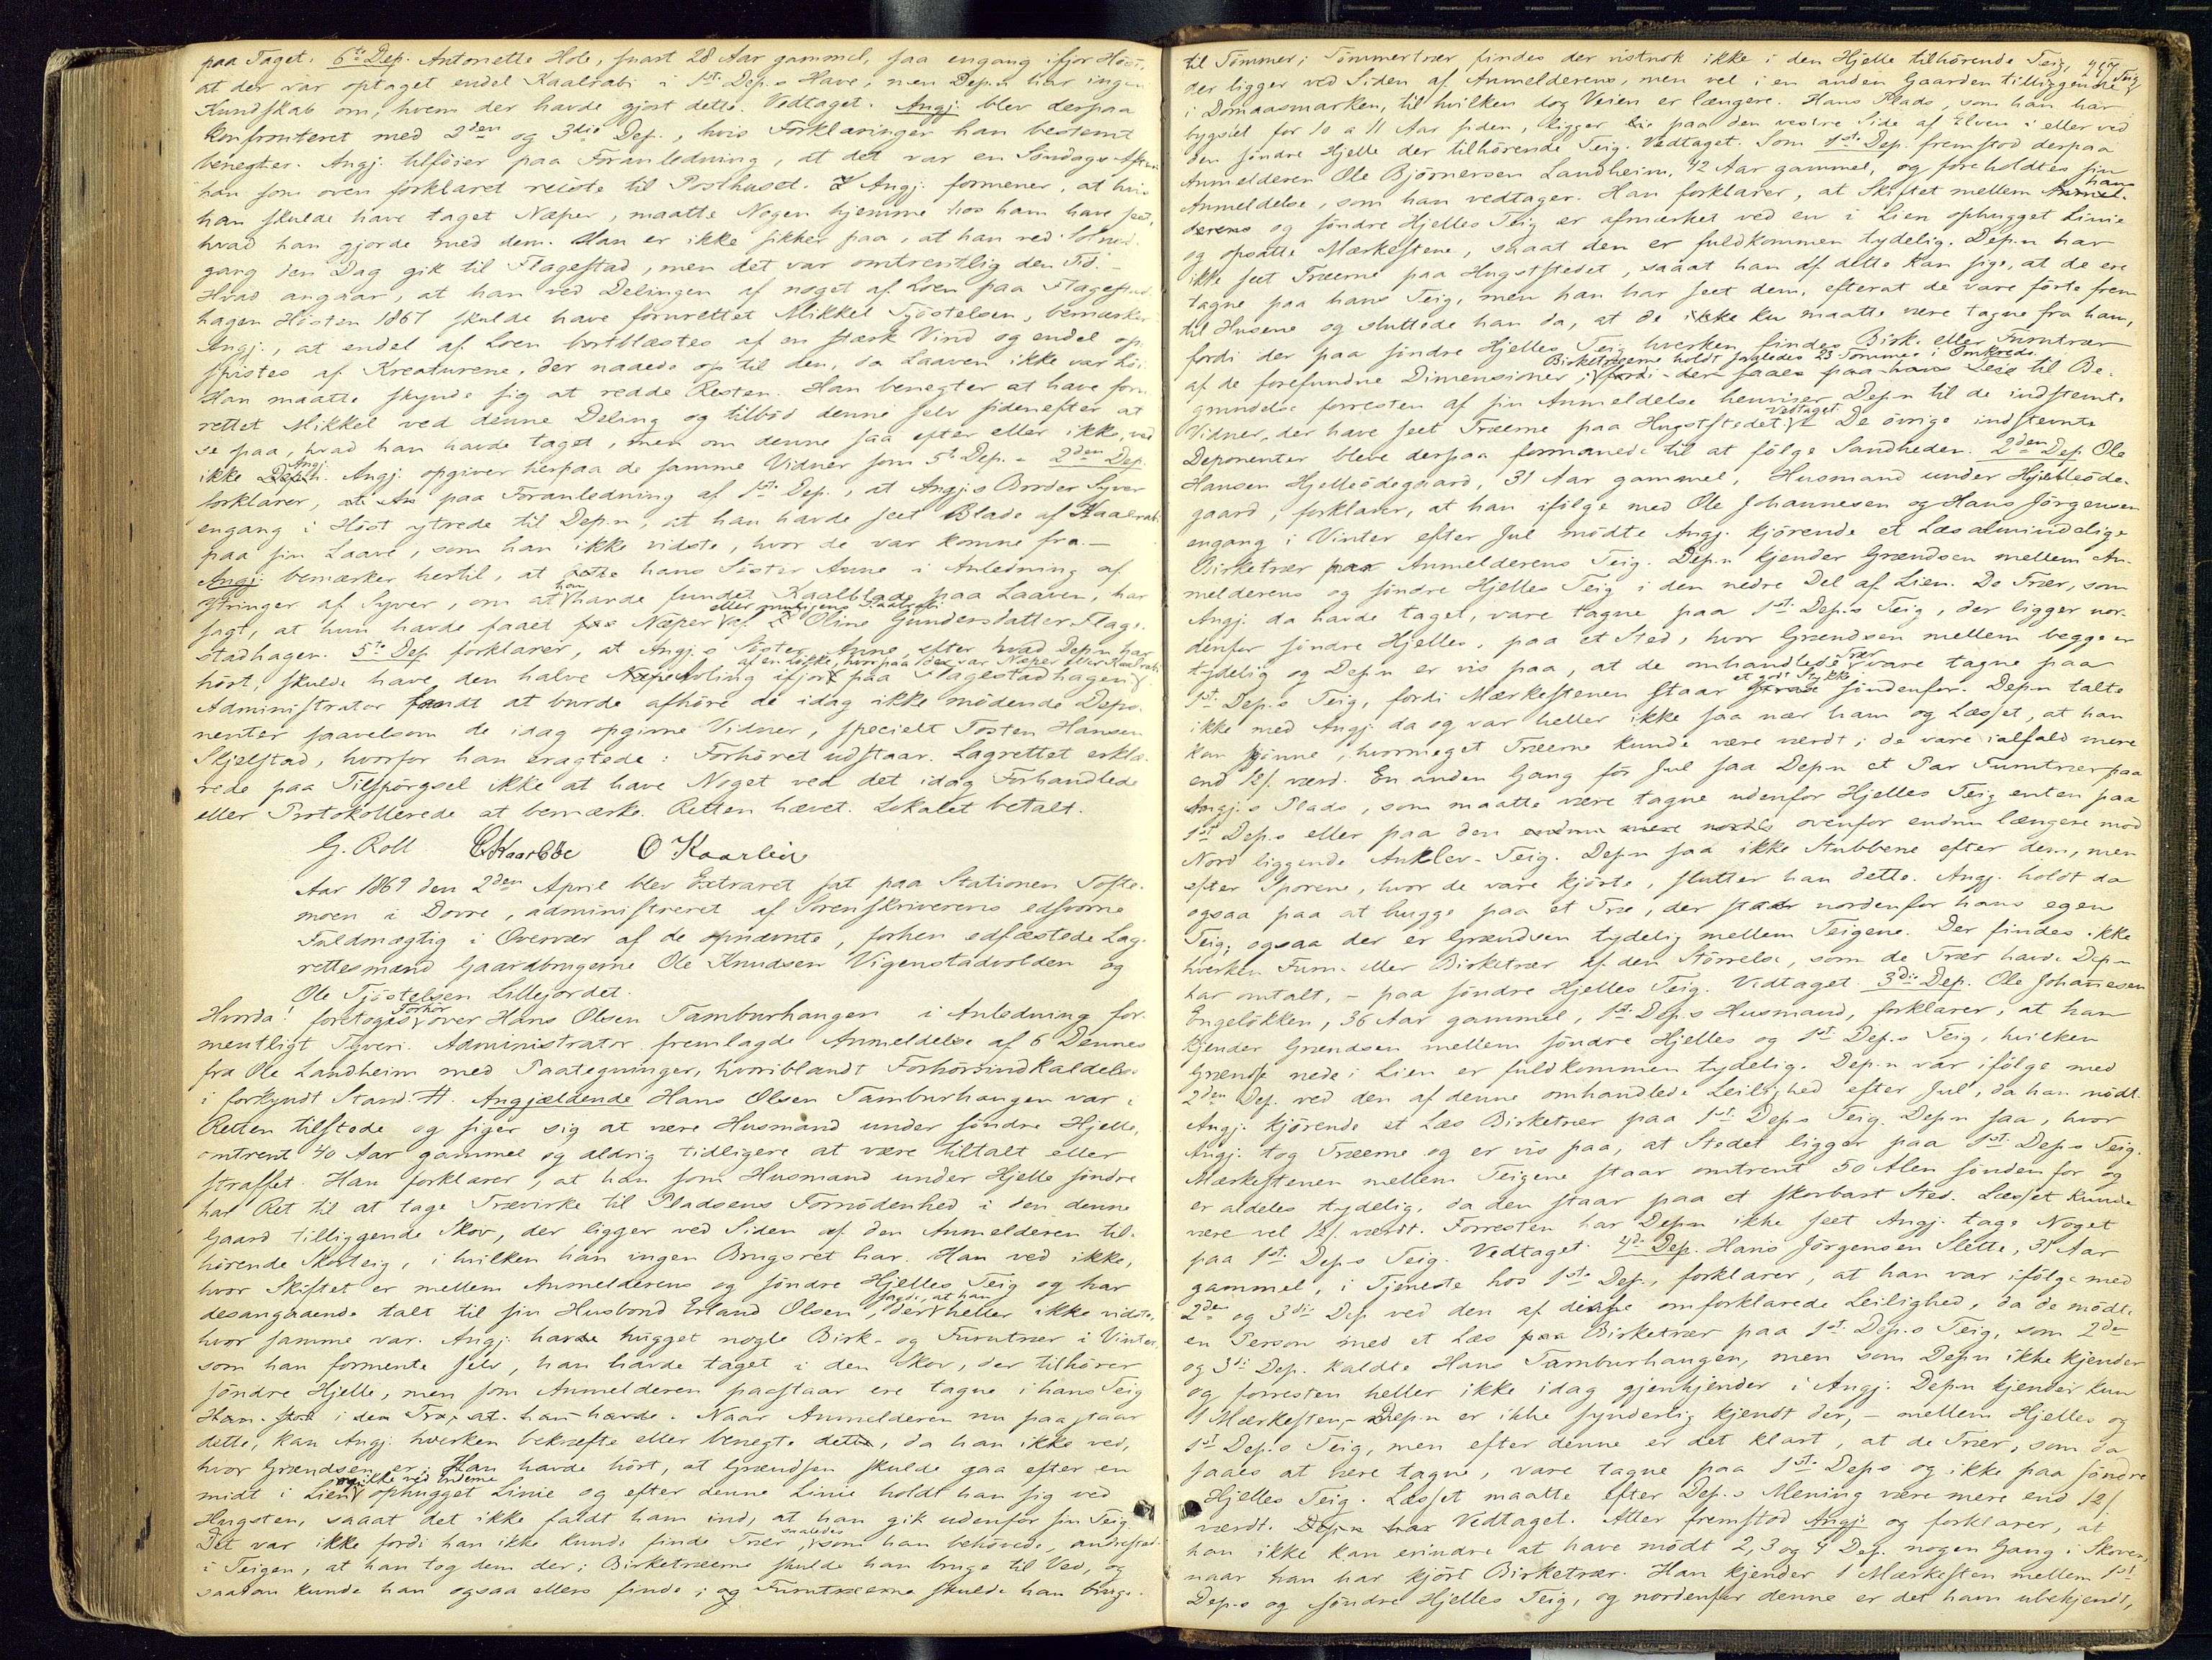 paa Taget. 6te Dep. Antonette Hole, snart 28 Aar gammel, saa engang ifjor Höst,
at der var optaget endel Kaalrabi i 1ste Dep.s Have, men Dep.n har ingen
Kundskab om, hvem der havde gjort dette. Vedtaget. Angj. blev derpaa
konfronteret med 2den og 3die Dep., hvis Forklaringer han bestemt
benegter. Angj. tilföier paa Foranledning, at det var en Söndags Aften
han som oven forklaret reiste til Posthuset. Angj. formener, at hvis
han skulde have taget Næper, maatte Nogen hjemme hos ham have seet,
hvad han gjorde med dem. Han er ikke sikker paa, at han ved Solned-
gang den Dag gik til Flagestad, men det var omtrentlig den Tid. -
Hvad angaar, at han ved Delingen af noget af Löen paa Flagestad-
hagen Hösten 1867 skulde have forurettet Mikkel Tjöstelsen, bemærker
Angj., at endel af Löen bortblæstes af en stærk Vind og endel op-
spistes af Kreaturene, der naaede op til den, da Laaven ikke var höi.
Han maatte skynde sig at redde Resten. Han benegter at have foru-
rettet Mikkel ved denne Deling og tilböd denne selv sidenefter at
se paa, hvad han havde taget, men om denne saa efter eller ikke, ved
ikke Angj. Angj. opgiver herpaa de samme Vidner som 5te Dep. - 2den Dep.
forklarer, paa Foranledning af 1ste Dep., at Angj.s Broder Syver
engang i Höst ytrede til Dep.n, at han havde seet Blade af Kaalrabi
paa sin Laave, som han ikke vidste, hvor de var komne fra. -
Angj. bemærker hertil, at hans Söster Anne i Anledning af
Ytringer af Syver, om at han havde fundet Kaalblade paa Laaven, har
sagt, at hun havde faaet Næper eller muligens Kaalrabi af Oline Gundersdatter Flage-
stadhagen. 5te Dep. forklarer, at Angj.s Söster Anne, efter hvad Dep.n har
hört, skulde have den halve Avling ifjor paa Flagestadhagen af en Lökke, hvorpaa der var Næper eller Kaalrabi.
Administrator fandt at burde afhöre de idag ikke mödende Depo-
nenter saavelsom de idag opgivne Vidner, specielt Tosten Hansen
Skjelstad, hvorfor han eragtede: Forhöret udstaar. Lagrettet erklæ-
rede paa Tilspörgsel ikke at have Noget ved det idag Forhandlede
eller Protokollerede at bemærke. Retten hævet. Lokalet betalt.
G. Roll. O Kaarlein
Aar 1869 den 2den April blev Extraret sat paa Stationen Tofte-
moen i Dovre, administreret af Sorenskriverens edsvorne
Fuldmægtig i Overvær af de opnævnte, forhen edfæstede Lag-
rettesmænd Gaardbrugerne Ole Knudsen Vigenstadvolden og
Ole Tjöstelsen Lillejordet.
Hvorda! foretoges Forhör over Hans Olsen Tamburhaugen i Anledning for-
mentligt Tyveri. Administrator fremlagde Anmeldelse af 6 Dennes
fra Ole Landheim med Paategninger, hvoriblandt Forhörsindkaldelse
i forkyndt Stand. #. Angjældende Hans Olsen Tamburhaugen var i
Retten tilstede og siger sig at være Husmand under söndre Hjelle,
omtrent 40 Aar gammel og aldrig tidligere at være tiltalt eller
straffet. Han forklarer, at han som Husmand under Hjelle söndre
har Ret til at tage Trævirke til Pladsens Fornödenhed i den denne
Gaard tilliggende Skov, der ligger ved Siden af den Anmelderen til-
hörende Skovteig, i hvilken han ingen Brugsret har. Han ved ikke,
hvor Skiftet er mellem Anmelderens og söndre Hjelles Teig og har
desangaaende talt til sin Husbond Erland Olsen, der sagde, at han heller ikke vidste,
hvor samme var. Angj. havde hugget nogle Birk- og Furutrær i Vinter,
som han formente selv, han havde taget i den Skov, der tilhörer
söndre Hjelle, men som Anmelderen paastaar ere tagne i hans Teig
Naar Anmelderen nu paastaar
dette, kan Angj. hverken bekræfte eller benegte dette, da han ikke ved,
hvor Grændsen er; Han havde hört, at Grændsen skulde gaa efter en
midt i Lien og ikke ved Enderne ophugget Linie og efter denne Linie holdt han sig ved
Hugsten, saaat det ikke faldt ham ind, at han gik udenfor sin Teig.
Det var ikke fordi han ikke kunde finde Trær, saaledes som han behövede, andrested
i Teigen, at han tog dem der; Birketræerne skulde han bruge til Ved, og
saadan kunde han ogsaa ellers finde; og Furutræerne skulde han bruge
til Tömmer; Tömmertrær findes der vistnok ikke i den Hjelle tilhörende Teig,
der ligger ved Siden af Anmelderens, men vel i en anden Gaarden tilliggende Teig
i Domaasmarken, til hvilken dog Veien er længere. Hans Plads, som han har
bygslet for 10 a 11 Aar siden, ligger paa den vestre Side af Elven i eller ved
den söndre Hjelle der tilhörende Teig. Vedtaget. Som 1ste Dep. fremstod derpaa
Anmelderen Ole Björnersen Landheim, 42 Aar gammel, og foreholdtes sin
Anmeldelse, som han vedtager. Han forklarer, at Skiftet mellem hans
og söndre Hjelles Teig er afmærket ved en i Lien ophugget Linie
og opsatte Mærkestene, saaat den er fuldkommen tydelig. Dep.n har
ikke seet Træerne paa Hugststedet, saaat han af dette kan sige, at de ere
tagne paa hans Teig, men han har seet dem, efterat de vare förte frem
til Husene og sluttede han da, at de maatte være tagne fra ham,
fordi der paa söndre Hjelles Teig hverken findes Birk- eller Furutrær
af de forefundne Dimensioner; Birketræerne holdt saaledes 23 Tommer i Omkreds. til Be-
grundelse forresten af sin Anmeldelse henviser Dep.n til de indstevnte
Vidner, der have seet Træerne paa Hugststedet. Vedtaget. De övrige indstevnte
Deponenter bleve derpaa formanede til at fölge Sandheden. 2den Dep. Ole
Hansen Hjelleödegaard, 31 Aar gammel, Husmand under Hjelleöde-
gaard, forklarer, at han ifölge med Ole Johannesen og Hans Jörgensen
engang i Vinter efter Jul mödte Angj. kjörende et Læs almindelige
Birketrær paa Anmelderens Teig. Dep.n kjender Grændsen mellem An-
melderens og söndre Hjelles Teig i den nedre Del af Lien. De Trær, som
Angj. da havde taget, vare tagne paa 1ste Dep.s Teig, der ligger nor-
denfor söndre Hjelles, paa et Sted, hvor Grændsen mellem begge er
tydelig og Dep.n er vis paa, at de omhandlede Trær vare tagne paa
1ste Dep.s Teig, fordi Mærkestenen staar et godt Stykke söndenfor. Dep.n talte
ikke med Angj. da og var heller ikke saa nær ham og Læsset, at han
kan skjönne, hvormeget Træerne kunde være værdt; de vare ialfald mere
end 12/ værd. En anden Gang för Jul saa Dep.n et Par Furutrær paa
Angj.s Plads, som maatte være tagne udenfor Hjelles Teig enten paa
1ste Dep.s eller paa den ovenfor endnu længere mod
Nord liggende Anklev-Teig. Dep.n saa ikke Stubbene efter dem, men
efter Sporene, hvor de vare kjörte, slutter han dette. Angj. holdt da
ogsaa paa at hugge paa et Træ, der staar nordenfor hans egen
Teig; ogsaa der er Grændsen tydelig mellem Teigene. Der findes ikke
hverken Furu- eller Birketrær af den Störrelse, som de Trær havde Dep.n
har omtalt, - paa söndre Hjelles Teig. Vedtaget. 3die Dep. Ole Johannesen
Engelökken, 36 Aar gammel, 1ste Dep.s Husmand, forklarer, at han
kjender Grændsen mellem söndre Hjelles og 1ste Dep.s Teig, hvilken
Grændse nede i Lien er fuldkommen tydelig. Dep.n var ifölge med
2den Dep. ved den af denne omhandlede Leilighed efter Jul, da han mödte
Angj. kjörende et Læs Birketrær paa 1ste Dep.s Teig. Dep.n saa, hvor
Angj. tog Træerne og er vis paa, at Stedet ligger paa 1ste Dep.s Teig.
Mærkestenen mellem Teigene staar omtrent 50 Alen söndenfor og
er aldeles tydelig, da den staar paa et skovbart Sted. Læsset kunde
være vel 12/ værdt. Forresten har Dep.n ikke seet Angj. tage Noget
paa 1ste Dep.s Teig. Vedtaget. 4de Dep. Hans Jörgensen Slette, 31 Aar
gammel, i Tjeneste hos 1ste Dep., forklarer, at han var ifölge med
2den og 3die Dep. ved den af disse omforklarede Leilighed, da de mödte
en Person med et Læs Birketrær paa 1ste Dep.s Teig, som 2den
og 3die Dep. kaldte Hans Tamburhaugen, men som Dep.n ikke kjender
og forresten heller ikke idag gjenkjender i Angj. Dep.n kjender kun
1 Mærkesten, - Dep.n er ikke synderlig kjendt der, - mellem Hjelles og
1ste Dep.s Teig, men efter denne er det klart, at de Trær, som da
saaes at være tagne, vare tagne paa 1ste Dep.s og ikke paa söndre
Hjelles Teig. Læsset maatte efter Dep.s Mening være mere end 12/
værdt. Vedtaget. Atter fremstod Angj. og forklarer, at
han ikke kan erindre at have mödt 2, 3 og 4 Dep. nogen Gang i Skoven,
naar han har kjört Birketrær. Han kjender 1 Mærkesten mellem 1ste
Dep.s og söndre Hjelles Teig, og nordenfor denne er det ham ubekjendt,